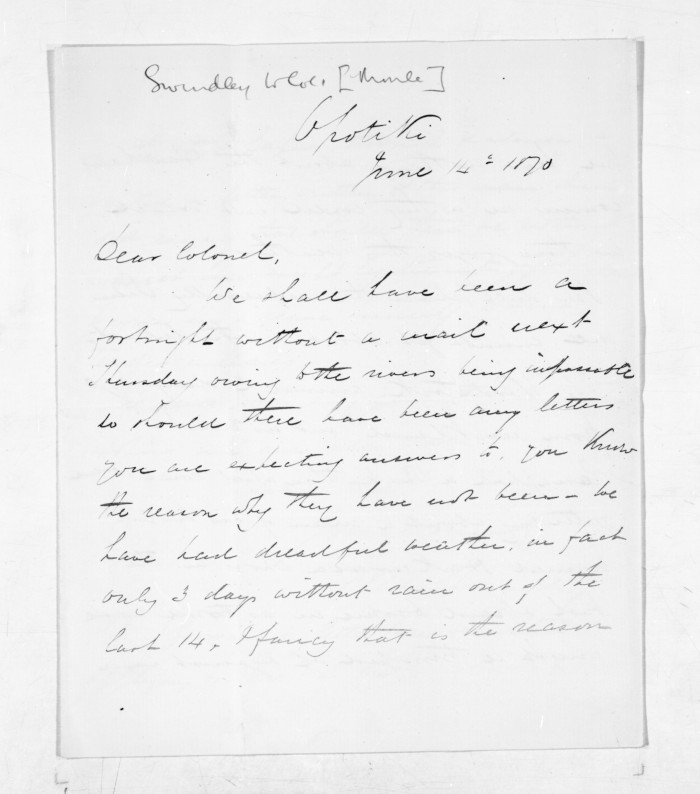 Swindley to Col. [Moule]
Opotiki
June 14th 1870
Dear Colonel,
We shall have been a
fortnight without a mail next
Thursday owing to the rivers being impassable
so should there have been any letters
you are expecting answers to, you know
the reason why they have not been - We
have had dreadful weather, in fact
only 3 days without rain out of the
last 14. I fancy that is the reason